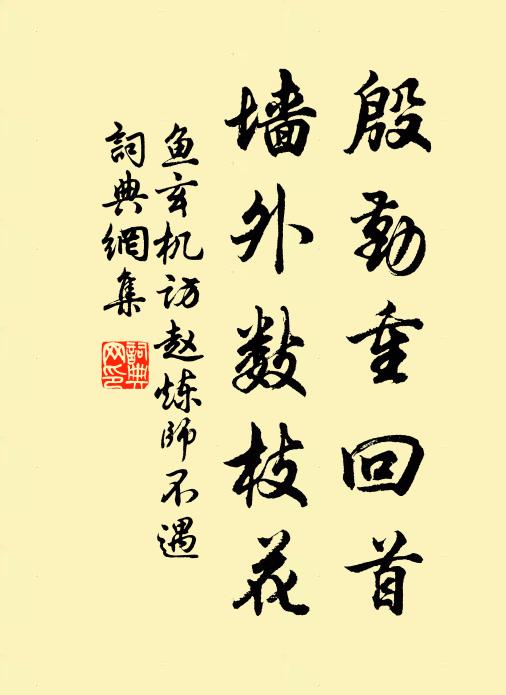 殷勤重回首
墙外数枝花
鱼玄机访赵炼师不遇
詞典網集
詞典
网印